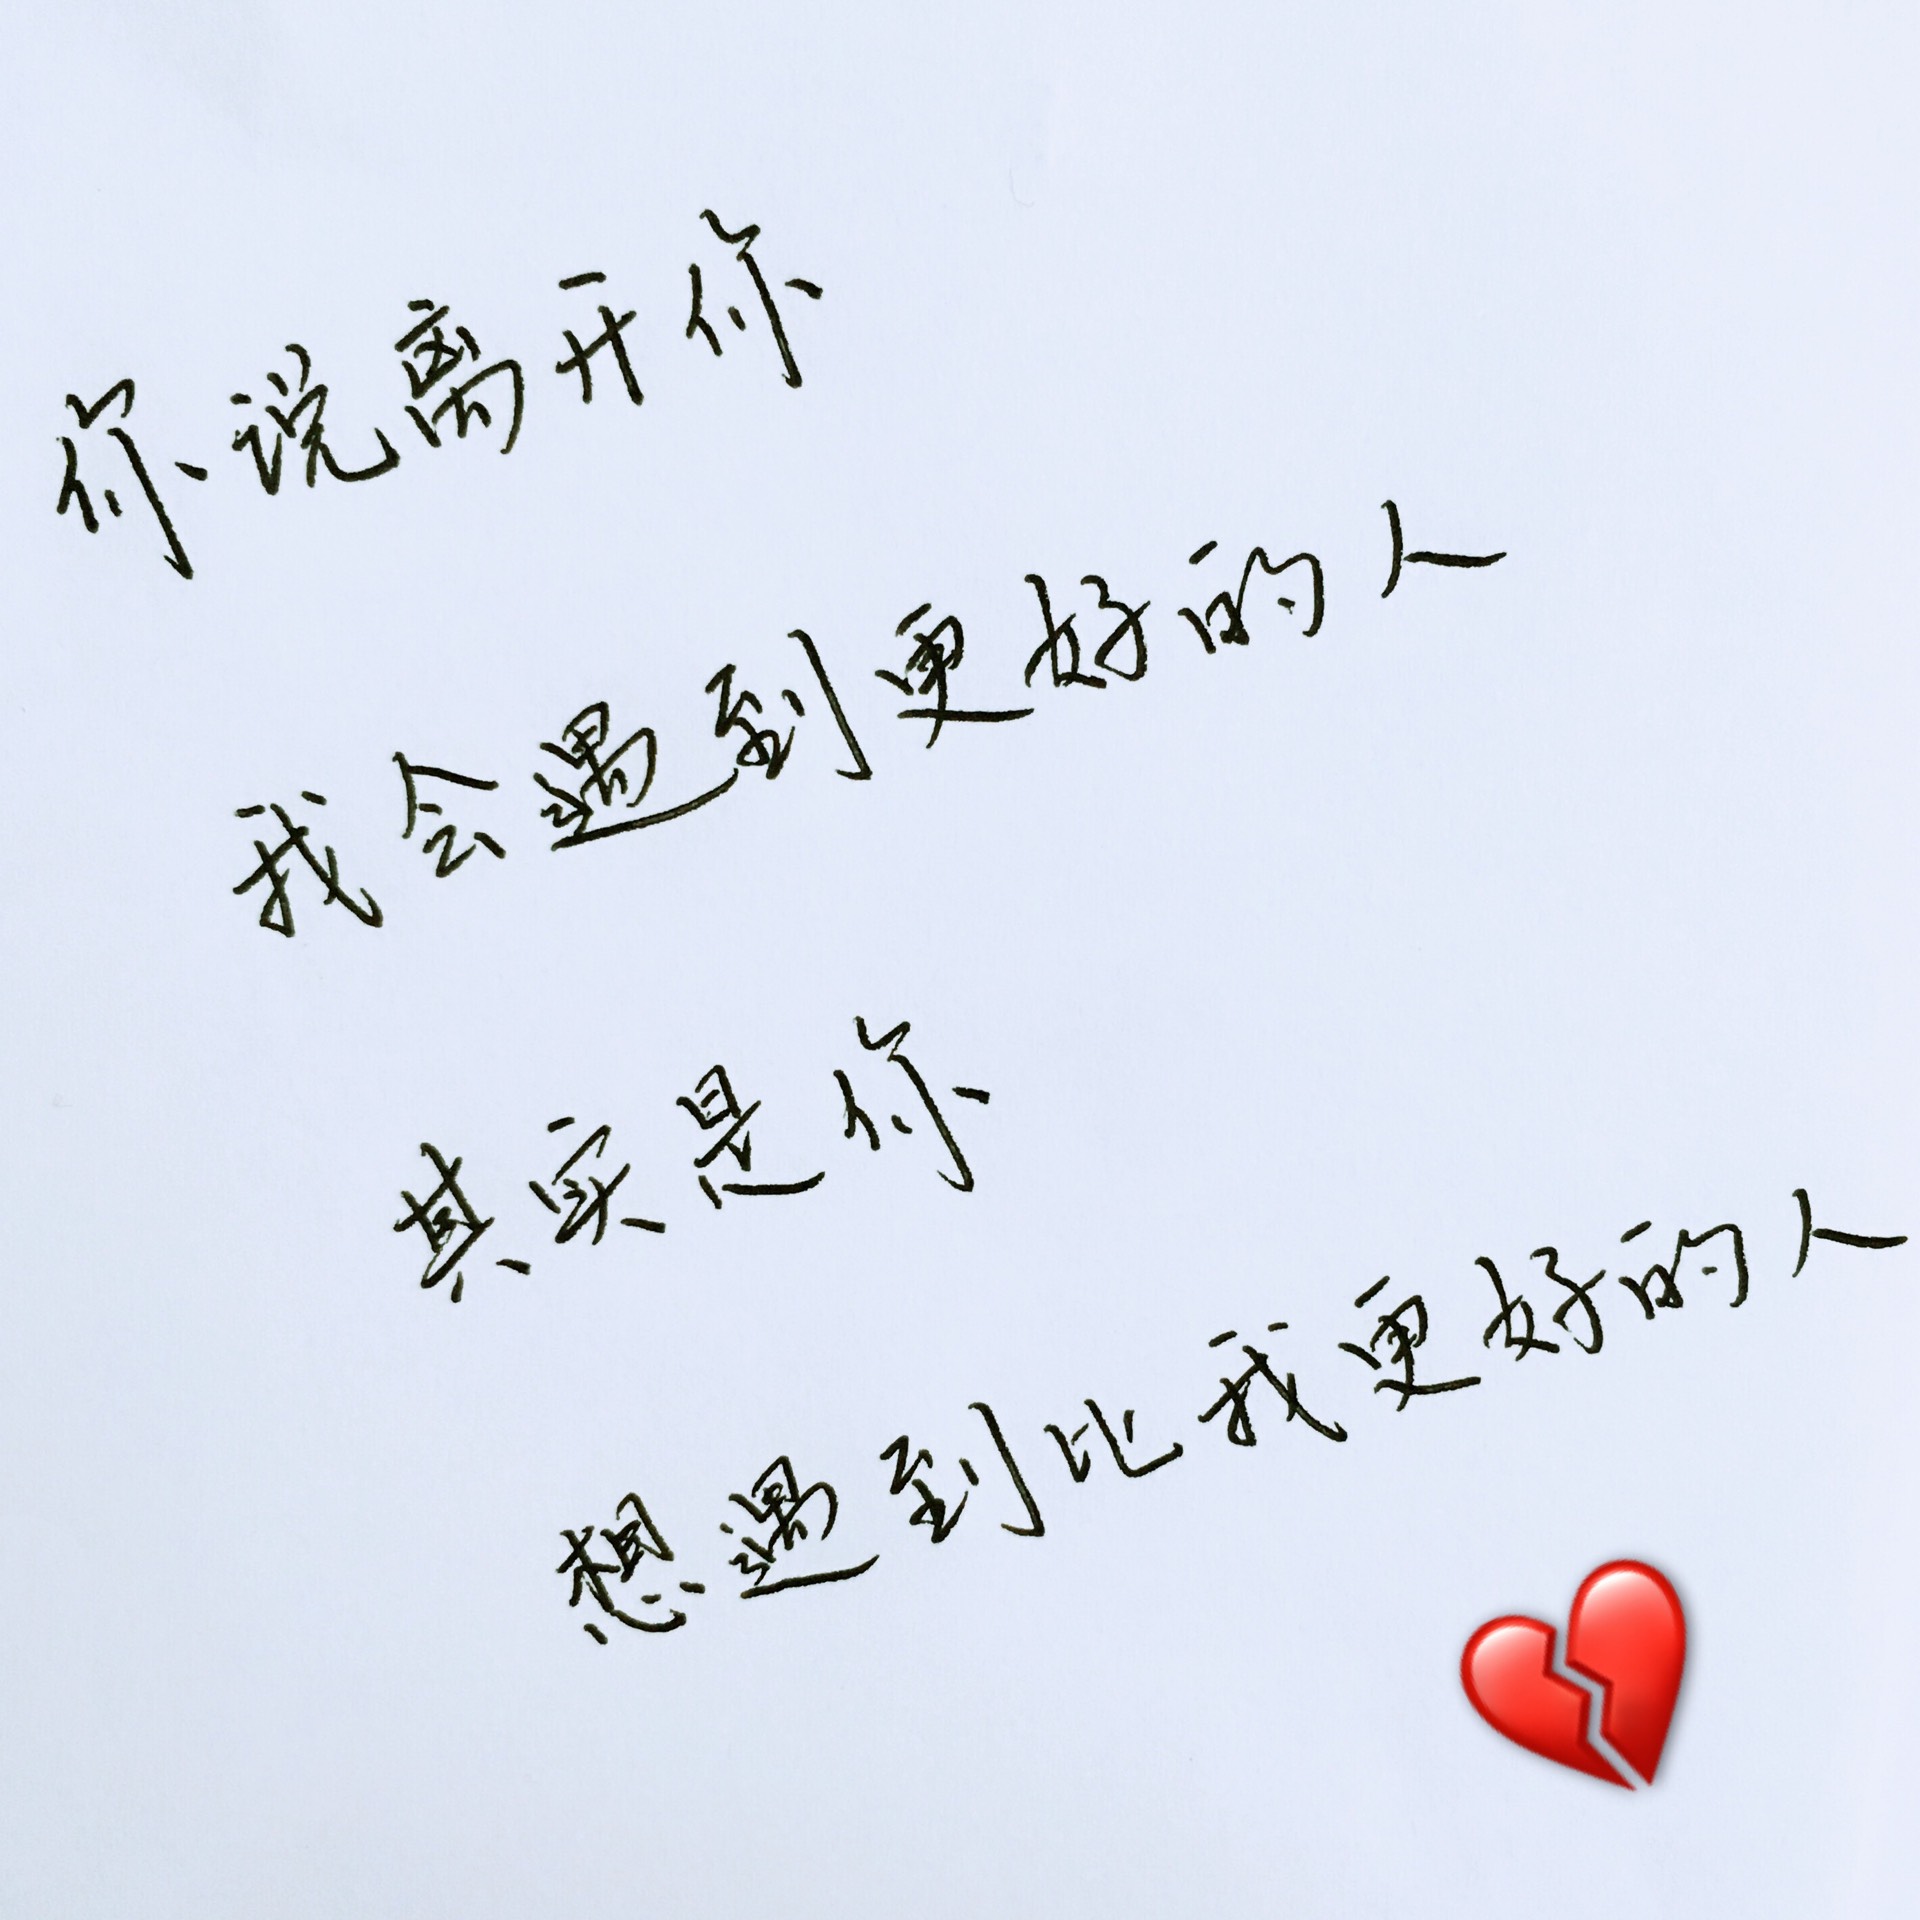 你说离开你
我会遇到更好的人
其实是你
想遇到比我更好的人